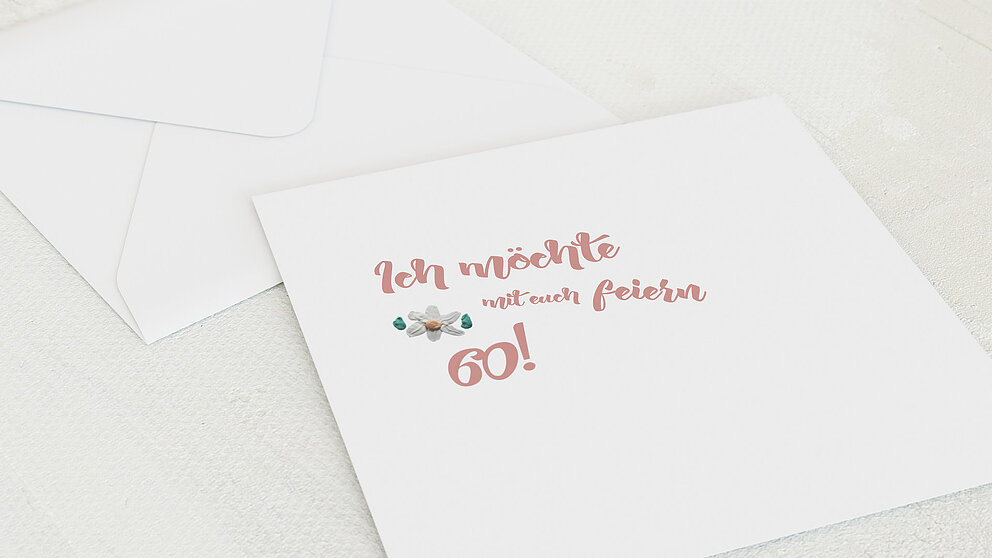 Ich möchte
mit euch feiern
60!